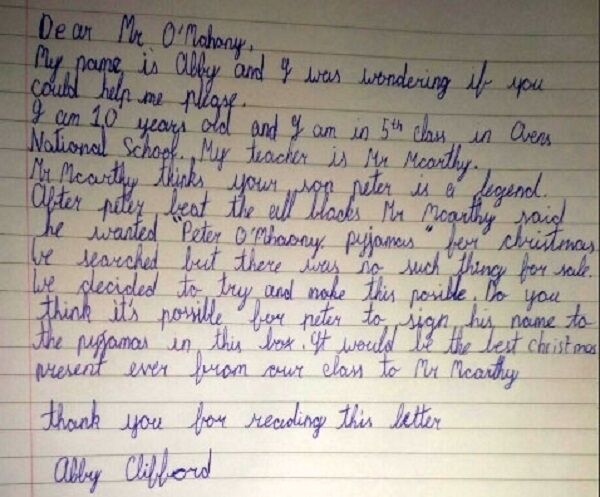 Dear Mr O'Mahony,
My name is Abby and I was wondering if you
could help me please.
I am 10 years old and I am in 5th class in Ovens
National School. My teacher is Mr Mcarthy.
Mr Mcarthy thinks your son peter is a legend.
After peter beat the all blacks Mr Mcarthy said
he wanted "Peter O'Mhaony pyjamas" for christmas
We searched but there was no such thing for sale.
We decided to try and make this posible. Do you
think it's possible for peter to sign his name to
the pyjamas in this box. It would be the best christmas
present ever from our class to Mr Mcarthy
thank you for reading this letter
Abby Clifford